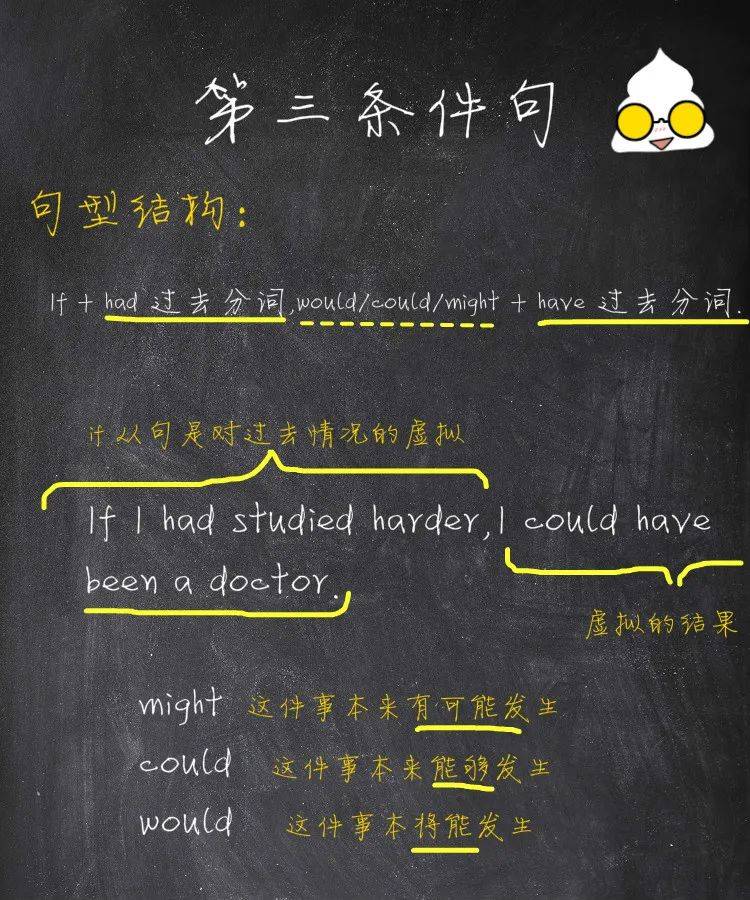 第三条件句
句型结构:
If + had 过去分词,would/could/might + have 过去分词.
if从句是对过去情况的虚拟
If I had studied harder,I could have
been a doctor.
虚拟的结果
might 这件事本来有可能发生
could 这件事本来能够发生
would 这件事本将能发生